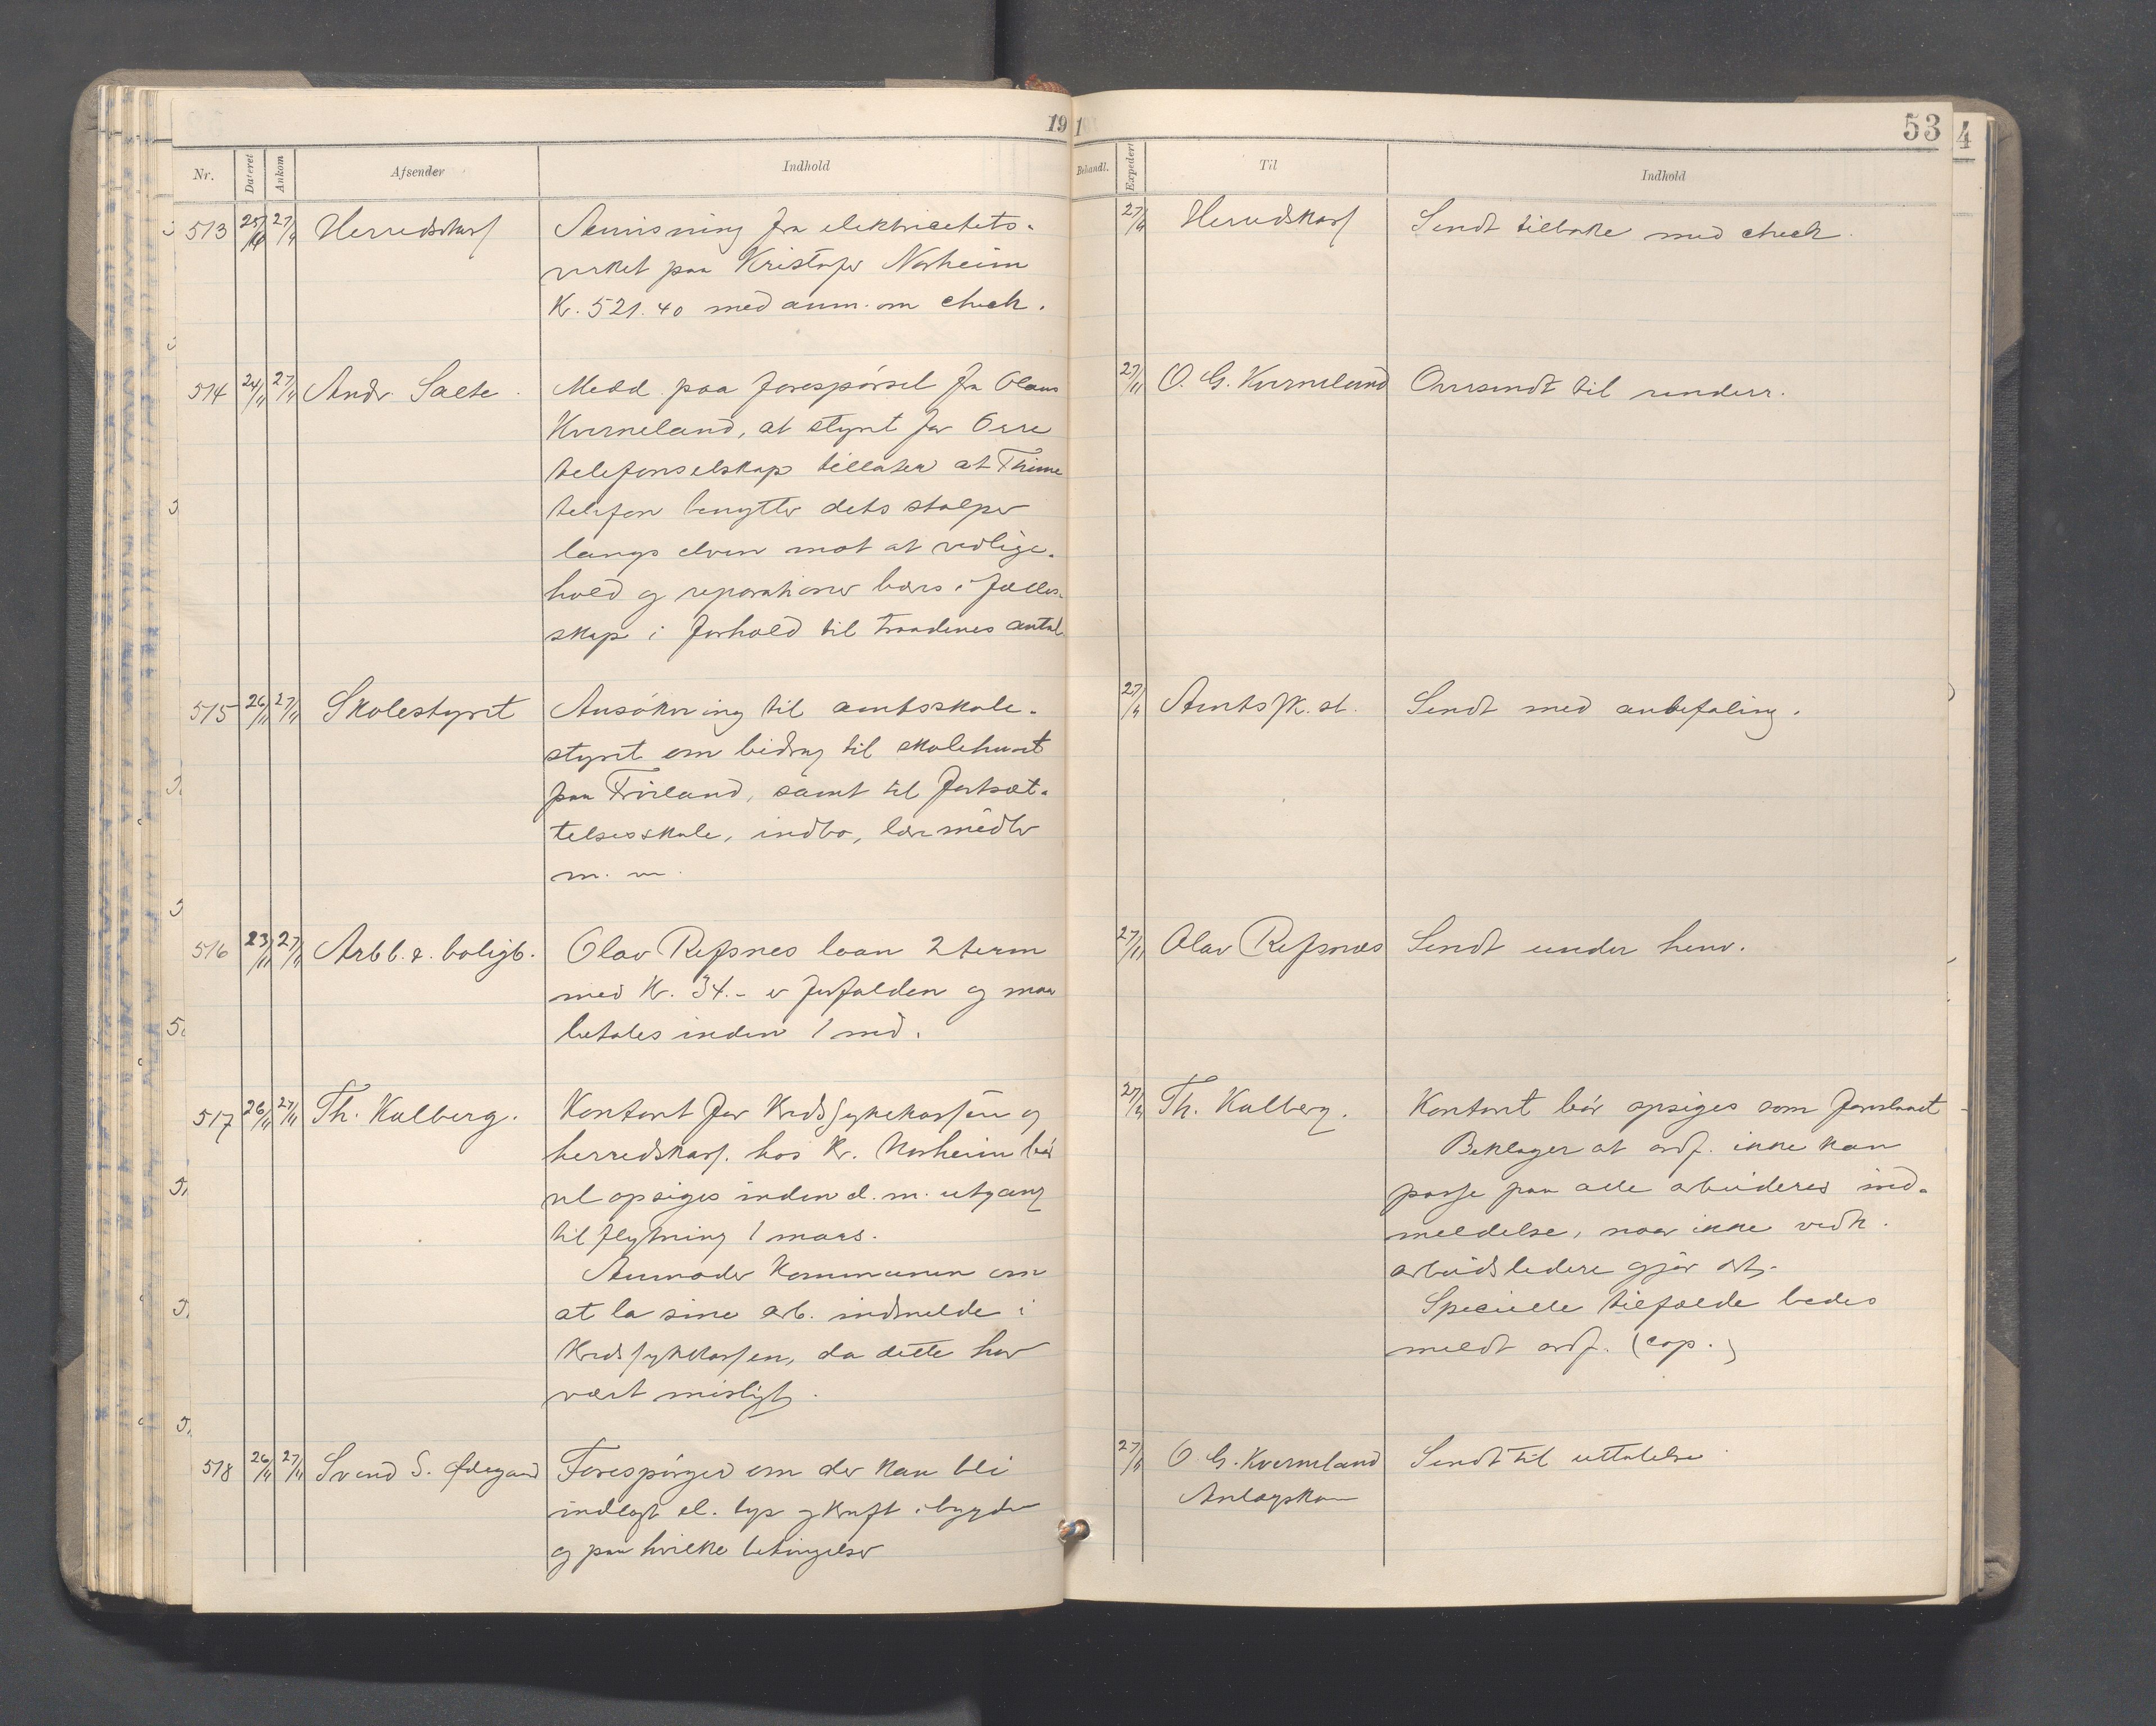 19 1
53
4
Nr. Dateret Ankom Afsender Indhold Behandl. Expedert Til Indhold
513 25/11 27/11 Herredskass Anvisning fra elektricitets-
verket paa Kristofer Norheim
Kr. 521.40 med anm. om check.
27/11 Herredskass Sendt tilbake med check.
514 24/11 27/11 Andr. Salte. Medd. paa forespörsel fra Olaus
Kverneland, at styret for Orre
telefonselskap tillater at Thime
telefon benytter dets stolper
langs elven mot at vedlige-
hold og reparationer bæres i fælles-
skap i forhold til traadenes antal
27/11 O. G. Kverneland Oversendt til underr.
515 26/11 27/11 Skolestyret Ansökning til amtsskole-
styret om bidrag til skolehuset
paa Fröiland, samt til fortsæt-
telsesskole, indbo, læremidler
m. m.
27/11 Amtssk. st. Sendt med anbefaling.
516 23/11 27/11 Arbb. & boligb. Olav Refsnes laan 2 term
med Kr. 34.- er forfalden og maa
betales inden 1 md.
27/11 Olav Refsnæs Sendt under henv.
517 26/11 27/11 Th. Kalberg. Kontoret for Kredssykekassen og
herredskass. hos Kr. Norheim bör
vel opsiges inden d. m. utgang
til flytning 1 mars.
Anmoder Kommunen om
at la sine arb. indmelde i
Kredssykekassen, da dette har
vært misligt.
27/11 Th. Kalberg. Kontoret bör opsiges som foreslaaet
Beklager at ordf. ikke kan
passe paa alle arbeideres ind-
meldelse, naar ikke vedk.
arbeidsledere gjör det.
Specielle tilfælde bedes
meldt ordf. (cop.)
518 26/11 27/11 Svend S. Ödegaard Forespörger om der kan bli
indlagt el. lys og kraft i bygden
og paa hvilke betingelser
27/11 O. G. Kverneland Sendt til uttalelse
Anlægskom